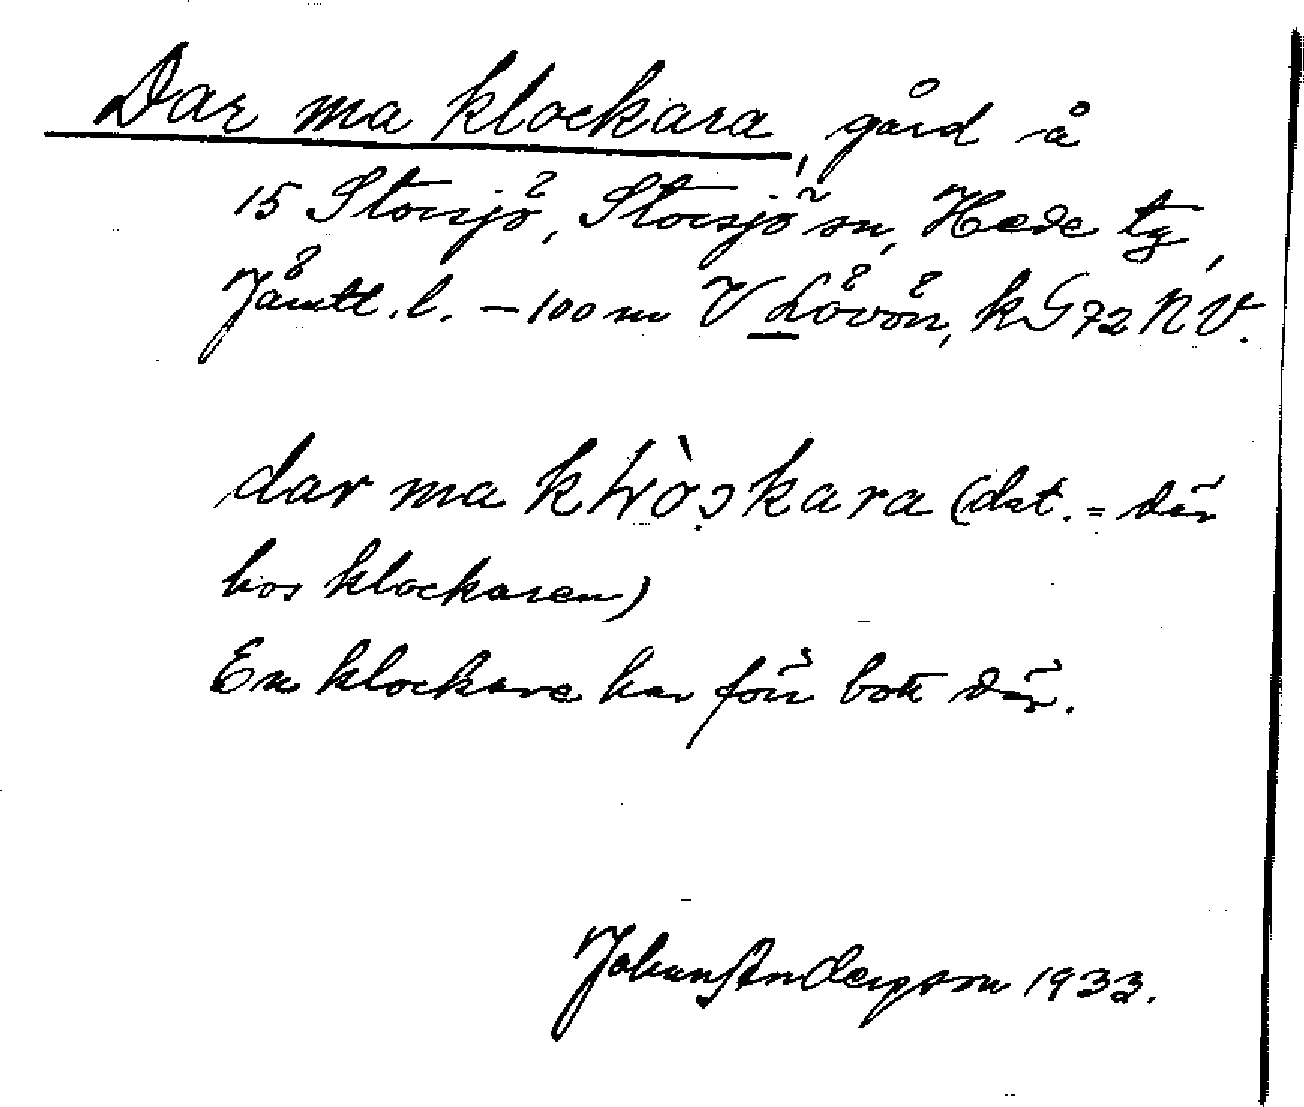 Dar ma klockara, gård å
15 Storsjö, Storsjö sn, Hede tg,
Jämtl. l. – 100 m V Lövön, kG72NV.
dar ma kɫròskara (dat. = där
hos klockaren)
En klockare har förr bott där.
Johan Anderson 1933.